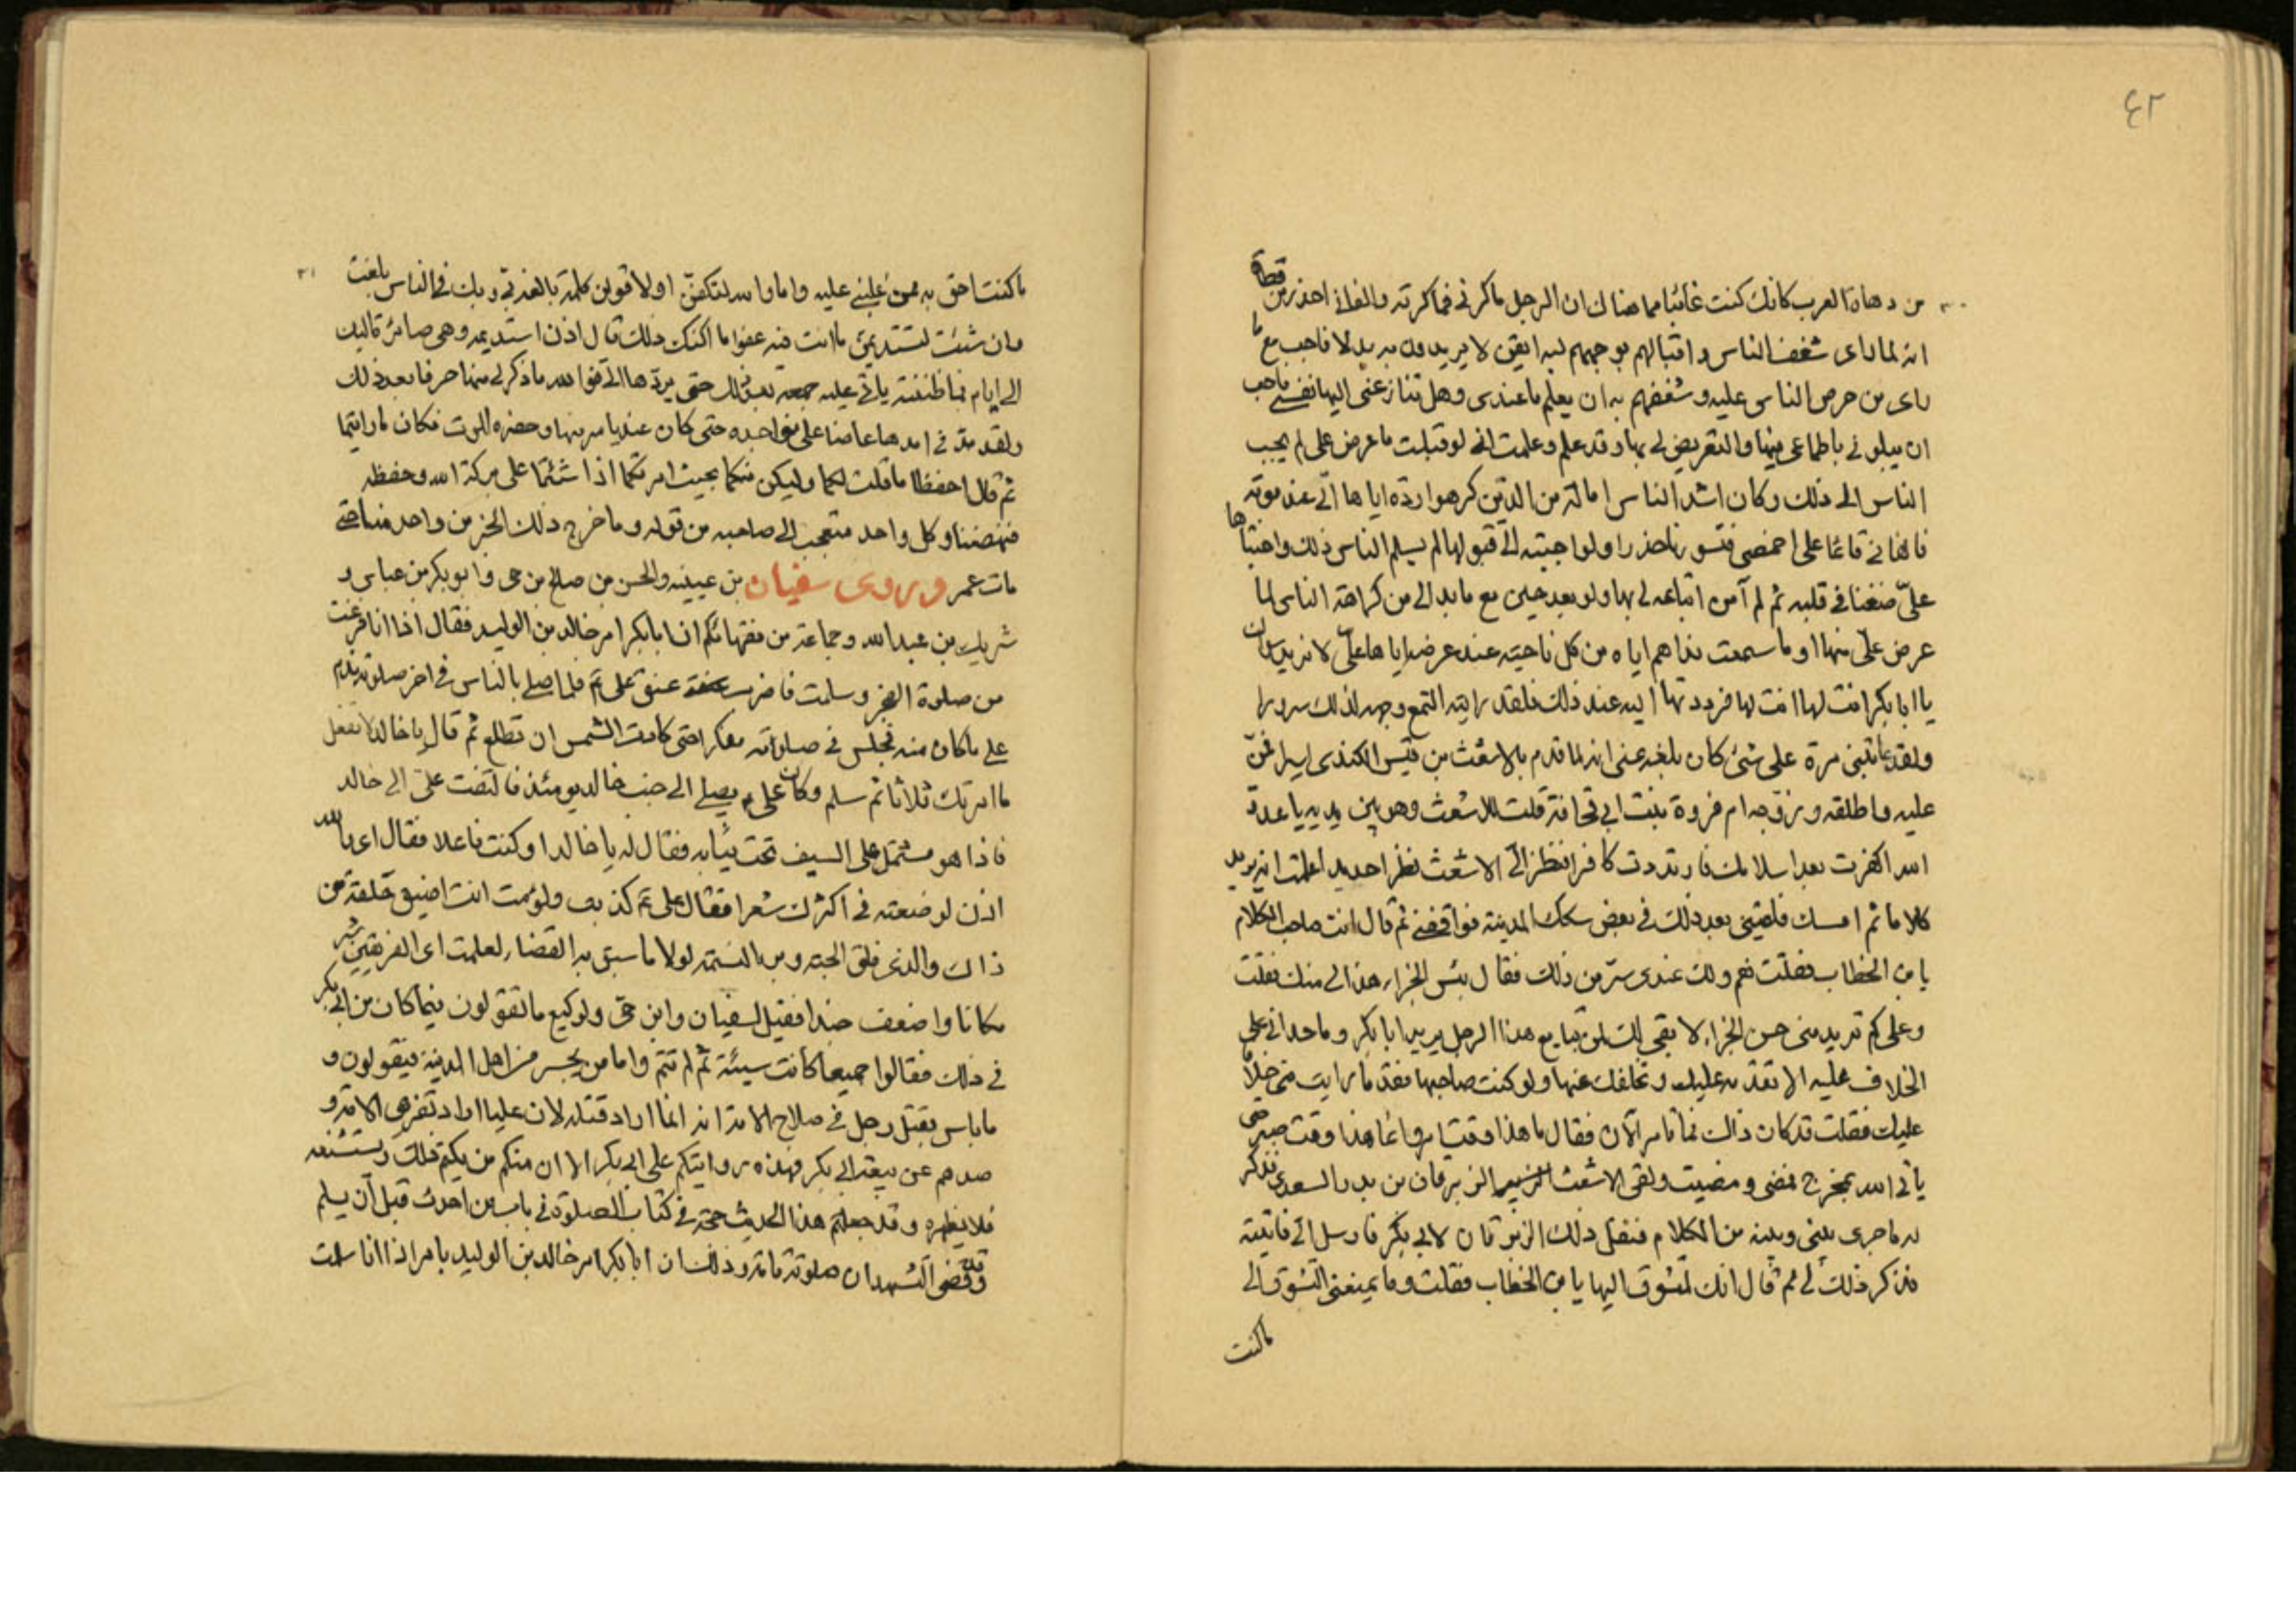 ٤٢
من دهاة العرب كانك كنت غائبا مما هناك ان الرجل ماكرني فماكرته والفاني احذر من قطاة
انه لما رای شغف الناس واقبالهم بوجههم لیه ایقن لا یریدون به بدلا فاحب مع ما
رای من حرص الناس علیه وشغفهم به ان یعلم ما عندی وهل تنازعنی الیها نفسی فاحب
ان یبلونی باطماعی فیها والتعریض لی بها وقد علم وعلمت انی لو قبلت ما عرض علی لم یجب
الناس الی ذلك وكان اشد الناس امالة من الذین كرهوا رده ایاها الیّ عند موته
فالفانی قائما علی اخمصی متسورا حذرا ولو اجبته الی قبولها لم یسلم الناس ذلك واختباها
علیّ ضغنا فی قلبه ثم لم آمن اتباعه لی بها ولو بعد حین مع ما بدا لی من كراهة الناس لما
عرض علیّ منها او ما سمعت نداهم ایاه من كل ناحیة عند عرضه ایاها علیّ لا نرید الا
یا ابا بكر انت لها انت لها فرددتها الیه عند ذلك فلقد رایته التمع وجهه لذلك سرورا
ولقد عاتبنی مرة علی شیٔ كان بلغه عنی انه لما قدم بالاشعث بن قیس الكندی اسیرا فمنّ
علیه واطلقه وزوجه ام فروة بنت ابی قحافة قلت للاشعث وهو بین یدیه یا عدوّ
الله اكفرت بعد اسلامك فارتددت كافرا فنظر الیّ الاشعث نظرا حدیدا علمت انه یرید
كلاما ثم امسك فلقینی بعد ذلك فی بعض سكك المدینة فوافقنی ثم قال انت صاحب الكلام
یا بن الخطاب فقلت نعم ولك عندی شرّ من ذلك فقال بئس الجزاء هذا لی منك فقلت
وعلی كم ترید منی حسن الجزاء لا بقی لك ان تبایع هذا الرجل یرید ابا بكر وما حدانی علی
الخلاف علیه الا تقدمه علیك وتخلفك عنها ولو كنت صاحبها فقد ما رایت منی خلافا
علیك فقلت قد كان ذاك فما تامر الآن فقال ما هذا وقت امر وانما هذا وقت صبر حتی
یاتی الله بمخرج فمضی ومضیت ولقی الاشعث الزبرقان بن بدر السعدی فذكر
له ما جری بینی وبینه من الكلام فنقل ذلك الزبرقان لابی بكر فارسل الیّ فاتیته
فذكر ذلك لی ثم قال انك لمتشوق الیها یا بن الخطاب فقلت وما یمنعنی التشوق الی
ما كنت
ما كنت احق به ممن غلبنی علیه واما والله لتكفنّ او لاقولن كلمة بالغة بی وبك فی الناس بلغت
وان شئت لتستدیمن ما انت فیه عفوا ما امكنك ذلك قال اذن استدیمه وهی صائرة الیك
الی ایام فما ظننته یاتی علیه جمعة بعد ذلك حتی یردها الیّ فوالله ما ذكر لی منها حرفا بعد ذلك
ولقد مدّ فی امدها عاضا علی نواجذه حتی كان عند یاسه منها وحضره الموت فكان ما رایتما
ثم قال احفظا ما قلت لكما ولیكن منكما بحیث امرتكما اذا شئتما علی بركة الله وحفظه
فنهضنا وكل واحد متعجب الی صاحبه من قوله وما خرج ذلك الخبر من واحد منا حتی
مات عمر وروی سفیان بن عیینه والحسن بن صالح بن حی وابو بكر بن عیاش و
شریك بن عبد الله وجماعة من فقهائكم ان ابا بكر امر خالد بن الولید فقال اذا انا فرغت
من صلوة الفجر وسلمت فاضرب عنق علی عم فلما صلی بالناس فی اخر صلوته ندم
علی ما كان منه فجلس فی صلوته مفكرا حتی كادت الشمس ان تطلع ثم قال یا خالد لا تفعل
ما امرتك ثلاثا ثم سلم وكان علی عم یصلی الی جنب خالد یومئذ فالتفت علیّ الی خالد
فاذا هو مشتمل علی السیف تحت ثیابه فقال له یا خالد او كنت فاعلا فقال ای والله
اذن لوضعته فی اكثرك شعرا فقال علی عم كذبت ولؤمت انت اضیق حلقة من
ذاك والذی فلق الحبه وبرا النسمه لولا ما سبق به القضاء لعلمت ای الفریقین شر
مكانا واضعف جندا فقیل لسفیان وابن حی ولوكیع ما تقولون فیما كان من ابی بكر
فی ذلك فقالوا جمیعا كانت سیئة ثم لم تتم واما من یجسر من اهل المدینة فیقولون و
ما باس بقتل رجل فی صلاح الامة انه انما اراد قتله لان علیا اراد تفریق الامة و
صدهم عن بیعة ابی بكر فهذه روایتكم علی ابی بكر الا ان منكم من یكتم ذلك ویستشنعه
فلا یظهره وقد جعلتم هذا الحدیث حجة فی كتاب الصلوة فی باب من احدث قبل ان یسلم
وقد قضی التشهد ان صلوته تامة وذلك ان ابا بكر امر خالد بن الولید بامر اذا انا سلمت